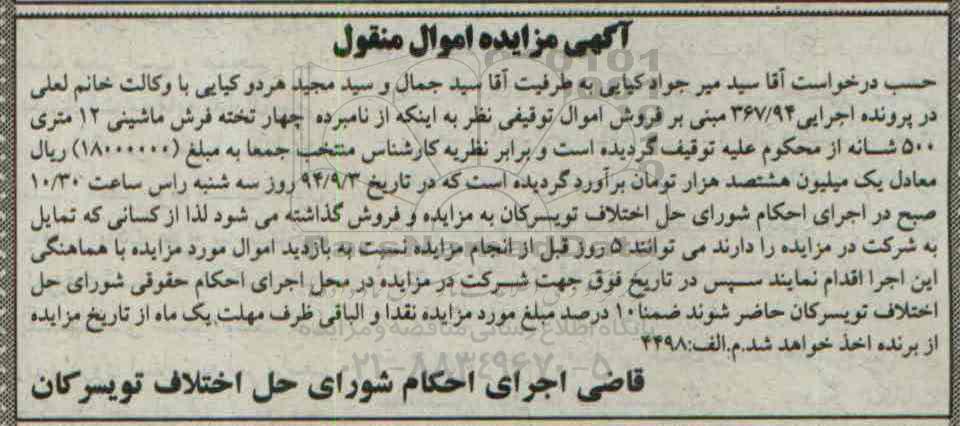 آگهی مزایده اموال منقول
حسب درخواست آقا سید میر جواد کیایی به طرفیت آقا سید جمال و سید مجید هردو کیایی با وکالت خانم لعلی
در پرونده اجرایی۳۶۷/۹۴ مبنی بر فروش اموال توقیفی نظر به اینکه از نامبرده چهار تخته فرش ماشینی ۱۲ متری
۵۰۰ شانه از محکوم علیه توقیف گردیده است و برابر نظریه کارشناس منتخب جمعا به مبلغ (۱۸۰۰۰۰۰۰) ریال
معادل یک میلیون هشتصد هزار تومان برآورد گردیده است که در تاریخ ۹۴/۹/۳ روز سه شنبه راس ساعت ۱۰/۳۰
صبح در اجرای احکام شورای حل اختلاف تویسرکان به مزایده و فروش گذاشته می شود لذا از کسانی که تمایل
به شرکت در مزایده را دارند می توانند ۵ روز قبل از انجام مزایده نسبت به بازدید اموال مورد مزایده با هماهنگی
این اجرا اقدام نمایند سپس در تاریخ فوق جهت شرکت در مزایده در محل اجرای احکام حقوقی شورای حل
اختلاف تویسرکان حاضر شوند ضمنا ۱۰ درصد مبلغ مورد مزایده نقدا و الباقی ظرف مهلت یک ماه از تاریخ مزایده
از برنده اخذ خواهد شد.م.الف:۴۴۹۸
قاضی اجرای احکام شورای حل اختلاف تویسرکان
پایگاه اطلاع رسانی مناقصه و مزایده
۰۲۱-۸۸۳۴۹۶۷۰-۵